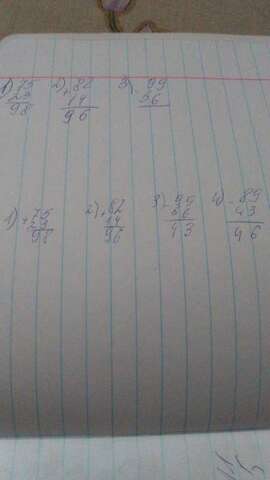 1) 75 2) + 82 3) - 99
23 14 56
98 96
1) + 75 2) + 82 3) - 99 4) - 89
23 14 56 43
98 96 43 46